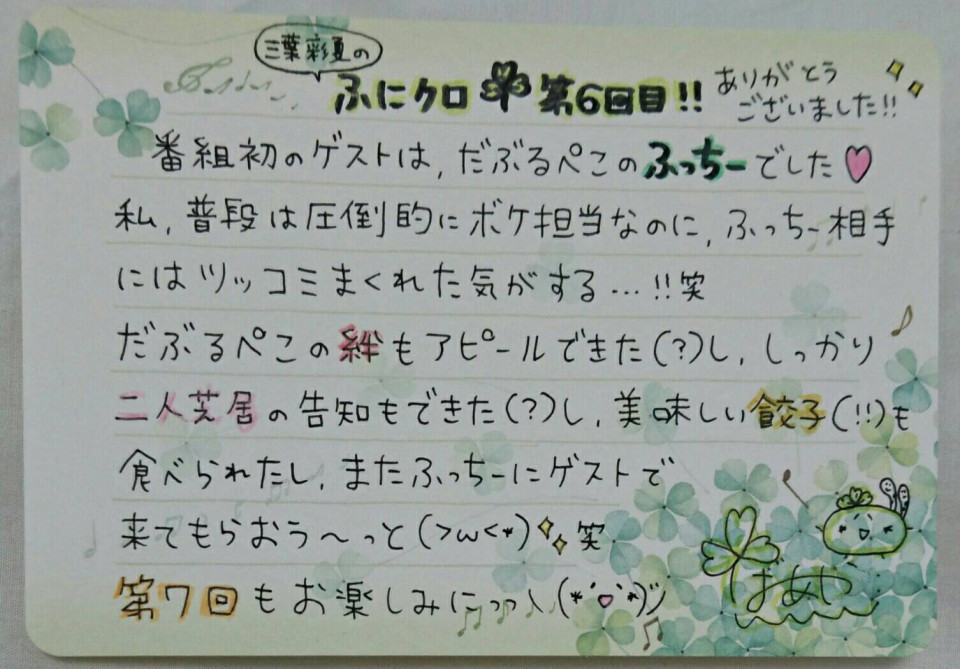 三葉彩夏の
ふにクロ 第6回目!!
ありがとう
ございました!!
番組初のゲストは、だぶるぺこのふっちーでした♡
私、普段は圧倒的にボケ担当なのに、ふっちー相手
にはツッコミまくれた気がする…!!笑
だぶるぺこの絆もアピールできた(?)し、しっかり
二人芝居の告知もできた(?)し、美味しい餃子(!!)も
食べられたし、またふっちーにゲストで
来てもらおう〜っと(>ω<*)笑
第7回もお楽しみにっっ\(*´○`*)ﾂ
ばあや